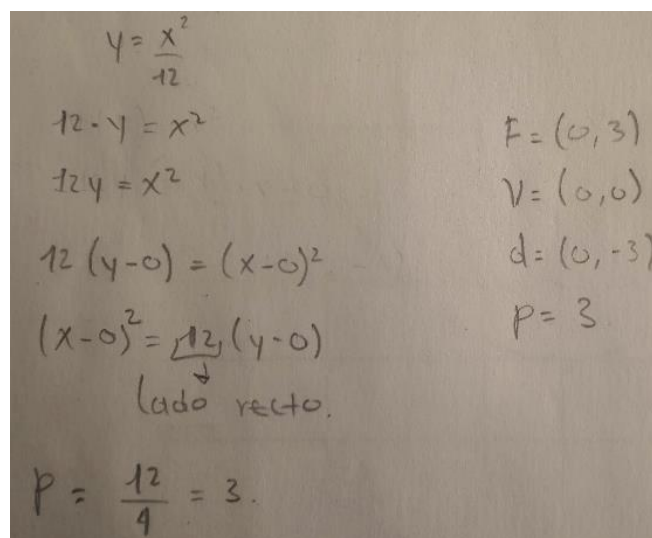 y = x²/12
12 · y = x²
12y = x²
12 (y-0) = (x-0)²
(x-0)² = 12 (y-0)
lado recto.
p = 12/4 = 3.
F = (0, 3)
V = (0,0)
d = (0, -3)
p = 3